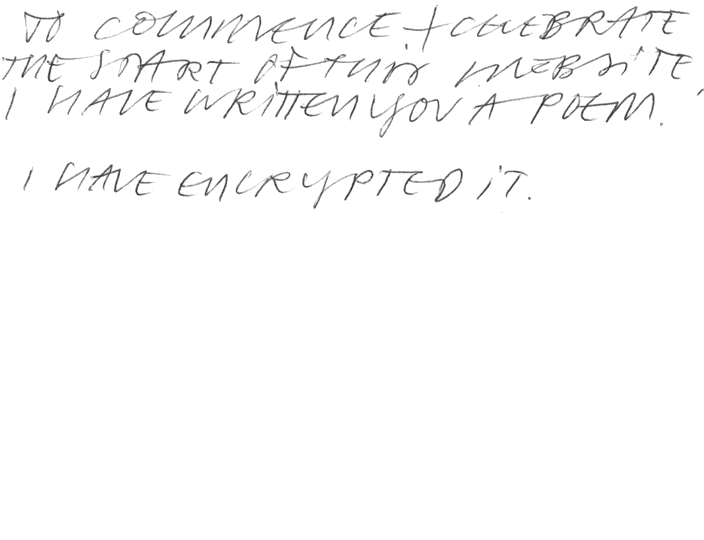 TO COMMENCE + CELEBRATE
THE START OF THIS WEBSITE
I HAVE WRITTEN YOU A POEM.
I HAVE ENCRYPTED IT.